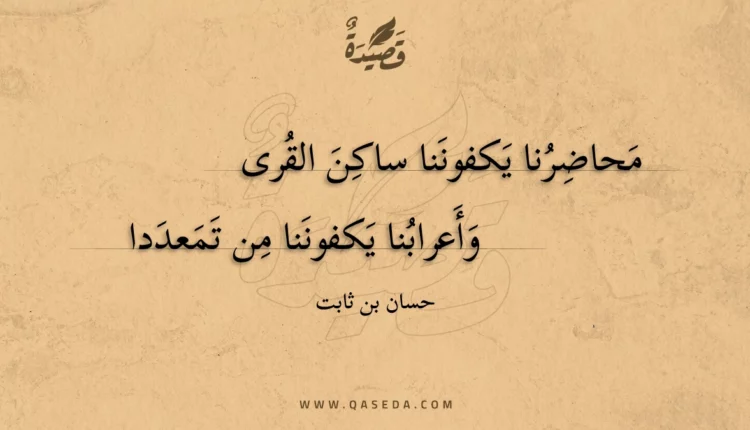 قَصيدَةٌ
مَحاضِرُنا يَكفونَنا ساكِنَ القُرى
وَأَعرابُنا يَكفونَنا مِن تَمَعدَدا
حسان بن ثابت
WWW.QASEDA.COM